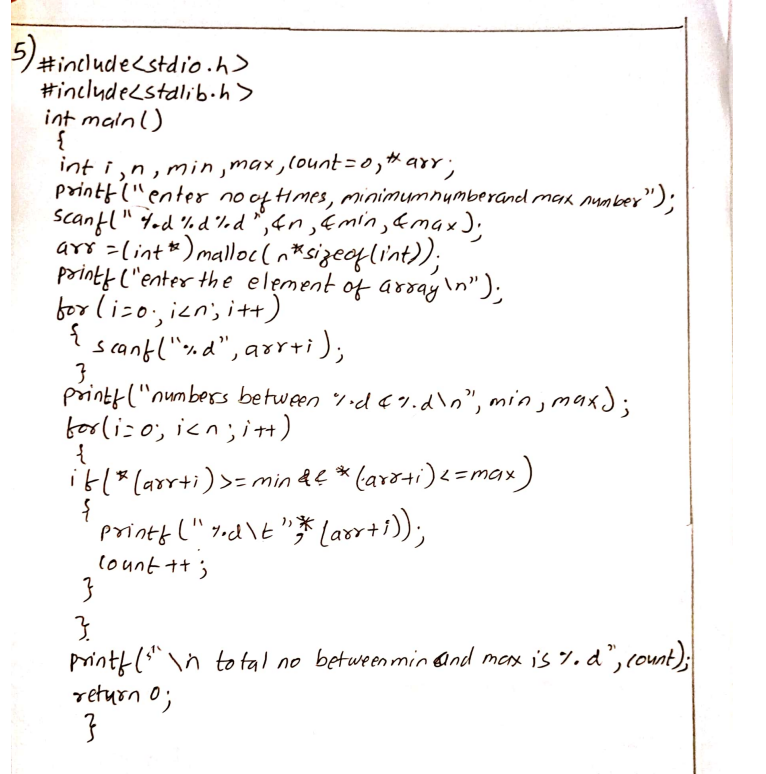 5) #include<stdio.h>
#include<stdlib.h>
int main()
{
int i,n,min,max,count=0,*arr;
printf("enter no of times, minimumnumberand max number");
scanf("%d%d%d",&n,&min,&max);
arr=(int*)malloc(n*sizeof(int));
printf("enter the element of array\n");
for(i=0;i<n;i++)
{
scanf("%d",arr+i);
}
printf("numbers between %d & %d\n",min,max);
for(i=0;i<n;i++)
{
if(*(arr+i)>=min && *(arr+i)<=max)
{
printf("%d\t",*(arr+i));
count++;
}
}
printf("\n total no betweenmin and max is %d",count);
return 0;
}